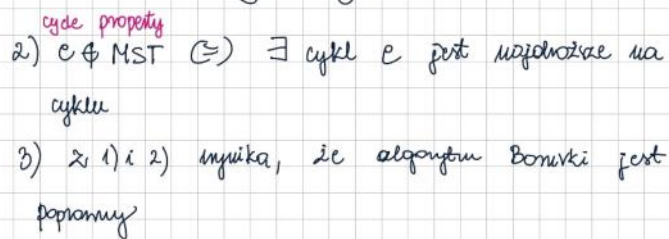 cycle property
2) e ∉ MST (=) ∃ cykl e jest najdroższe na
cyklu
3) z 1) i 2) wynika, że algorytm Boruvki jest
poprawny